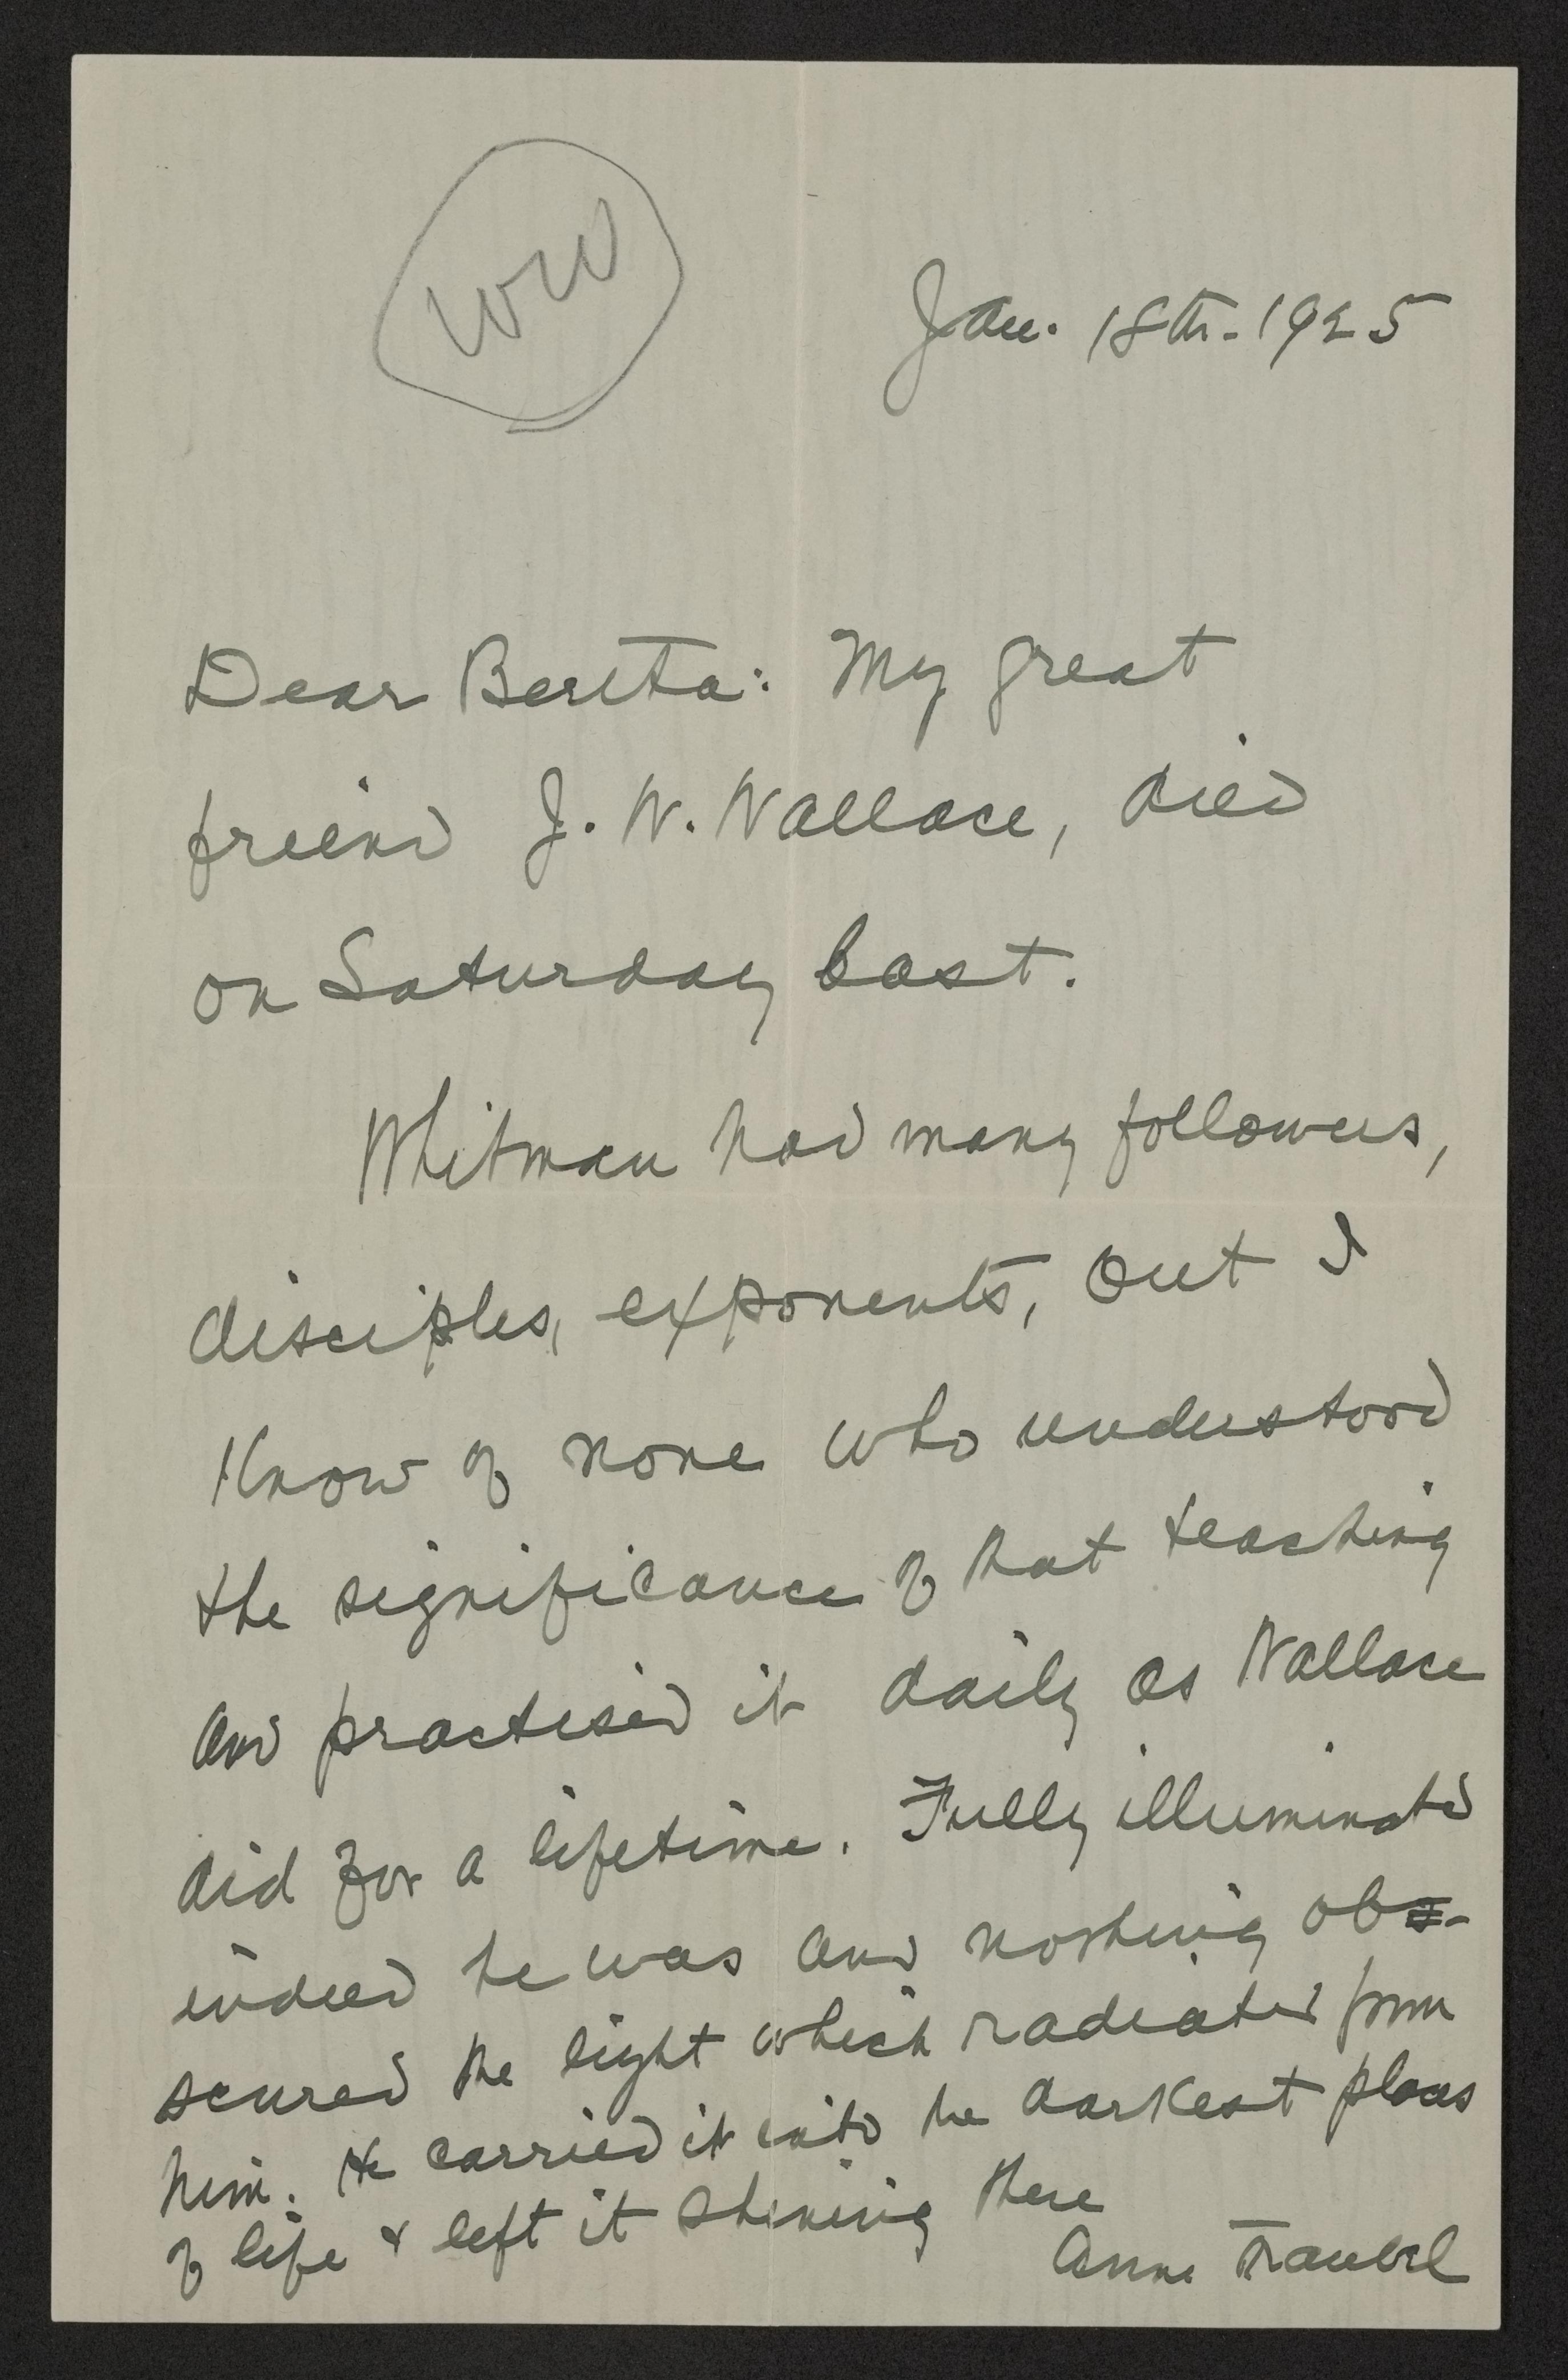 WW
Jan. 18th - 1925
Dear Berta: My great
friend J. W. Wallace, died
on Saturday last.
Whitman had many followers,
disciples, exponents, but I
Know of none who understood
the significance of that teaching
and practised it daily as Wallace
did for a lifetime. Fully illuminated
indeed he was and nothing ob-
scured the light which radiated from
him. He carried it into the darkest places
of life & left it shining there
Anne Traubel